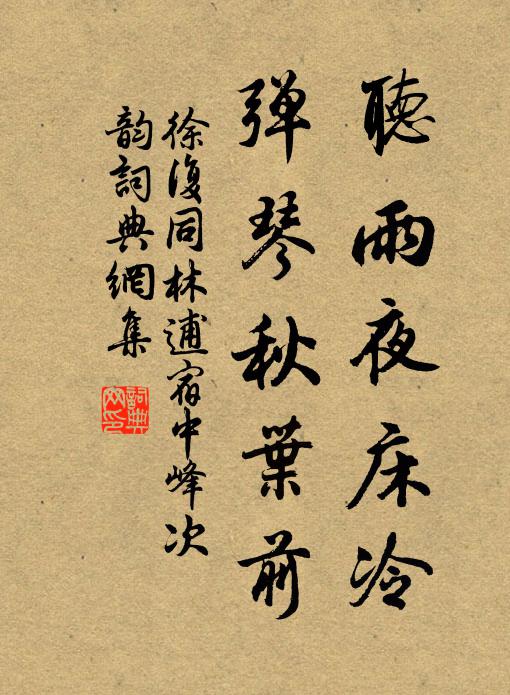 聽雨夜床冷
弹琴秋葉前
徐復同林逋宿中峰次
韵詞典網集
詞典